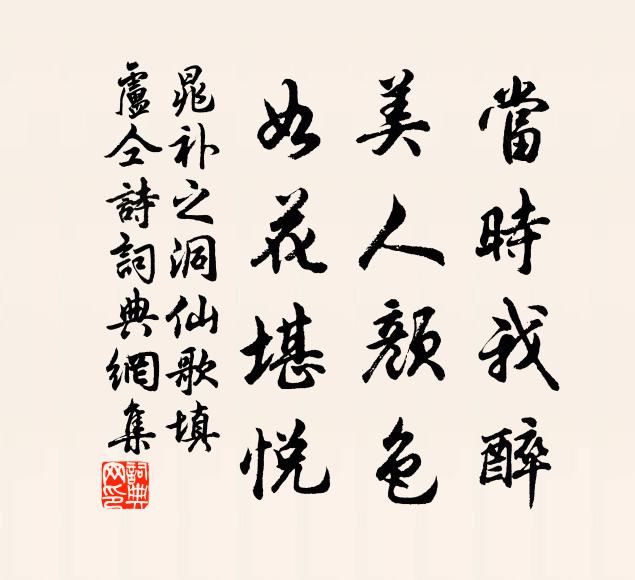 當時我醉
美人顏色
如花堪悅
晁補之洞仙歌填
盧仝詩詞典網集
詞典
网印